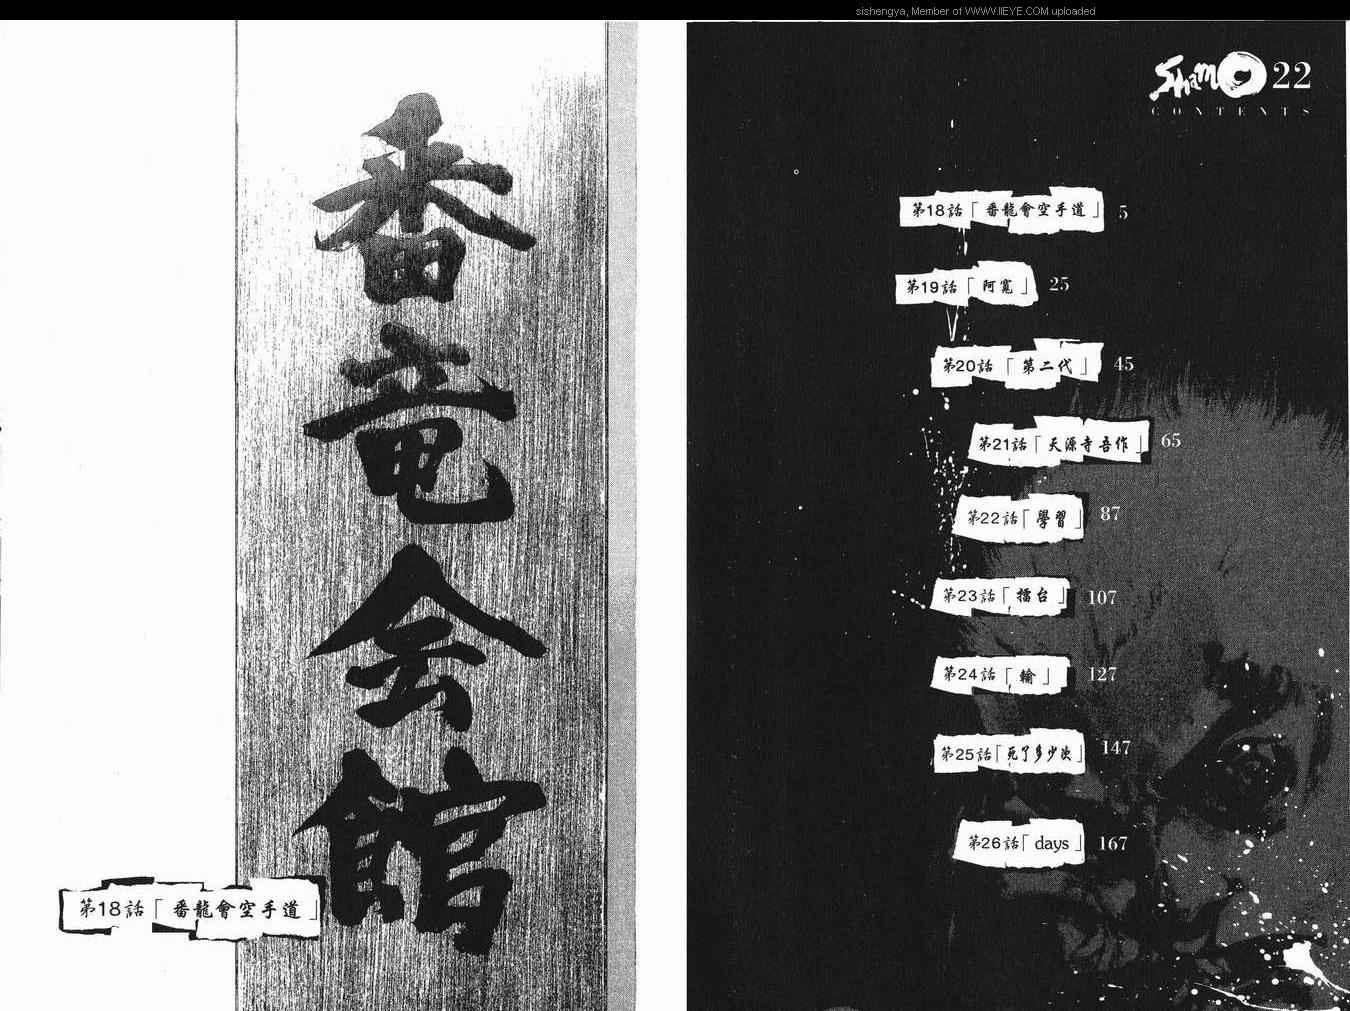 sishengya, Member of WWW.IIEYE.COM uploaded
Shamo 22
CONTENTS
第18話「番龍會空手道」 5
第19話「阿寬」 25
第20話「第二代」 45
第21話「天源寺吾作」 65
第22話「學習」 87
第23話「擂台」 107
第24話「輪」 127
第25話「死了多少次」 147
第26話「days」 167
番竜会館
第18話「番龍會空手道」